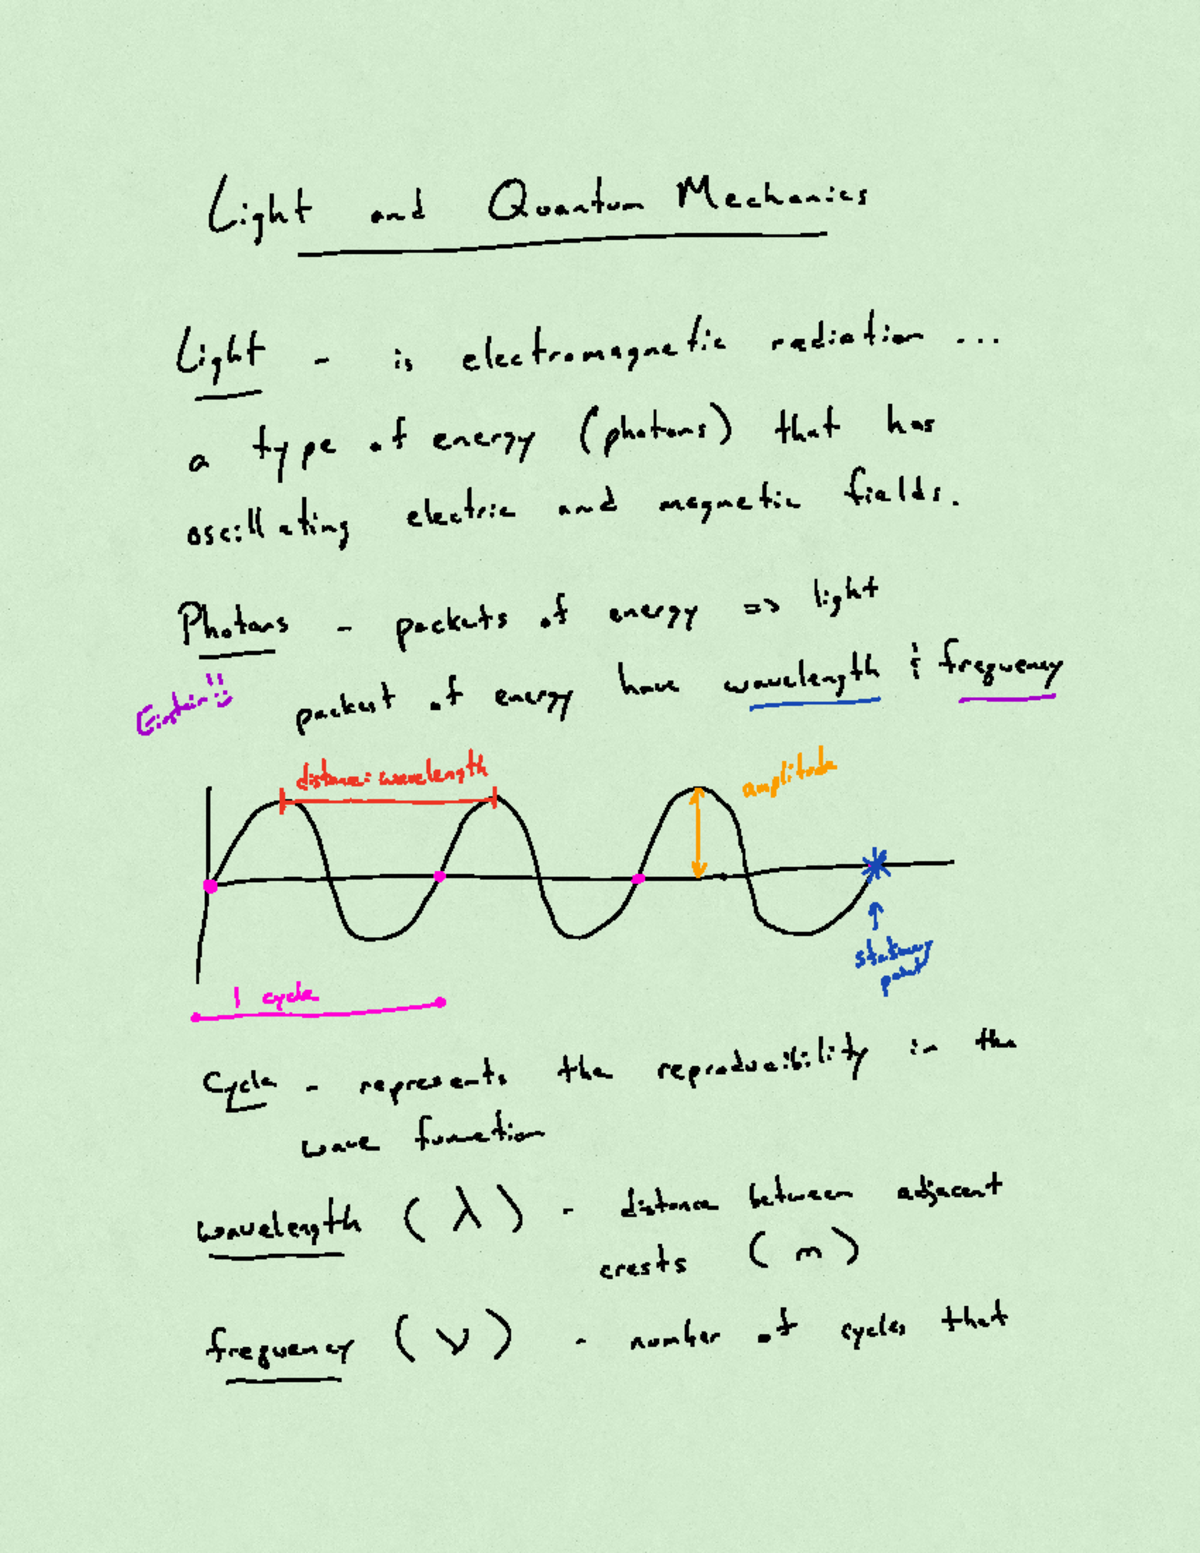 Light and Quantum Mechanics
Light - is electromagnetic radiation ...
a type of energy (photons) that has
oscillating electric and magnetic fields.
Photons - packets of energy => light
Einstein!!
packest of energy have wavelength & frequency
distance: wavelength
amplitude
stationary
point
1 cycle
Cycle - represents the reproducibility in the
wave function
wavelength (λ) - distance between adjacent
crests (m)
frequency (ν) - number of cycles that